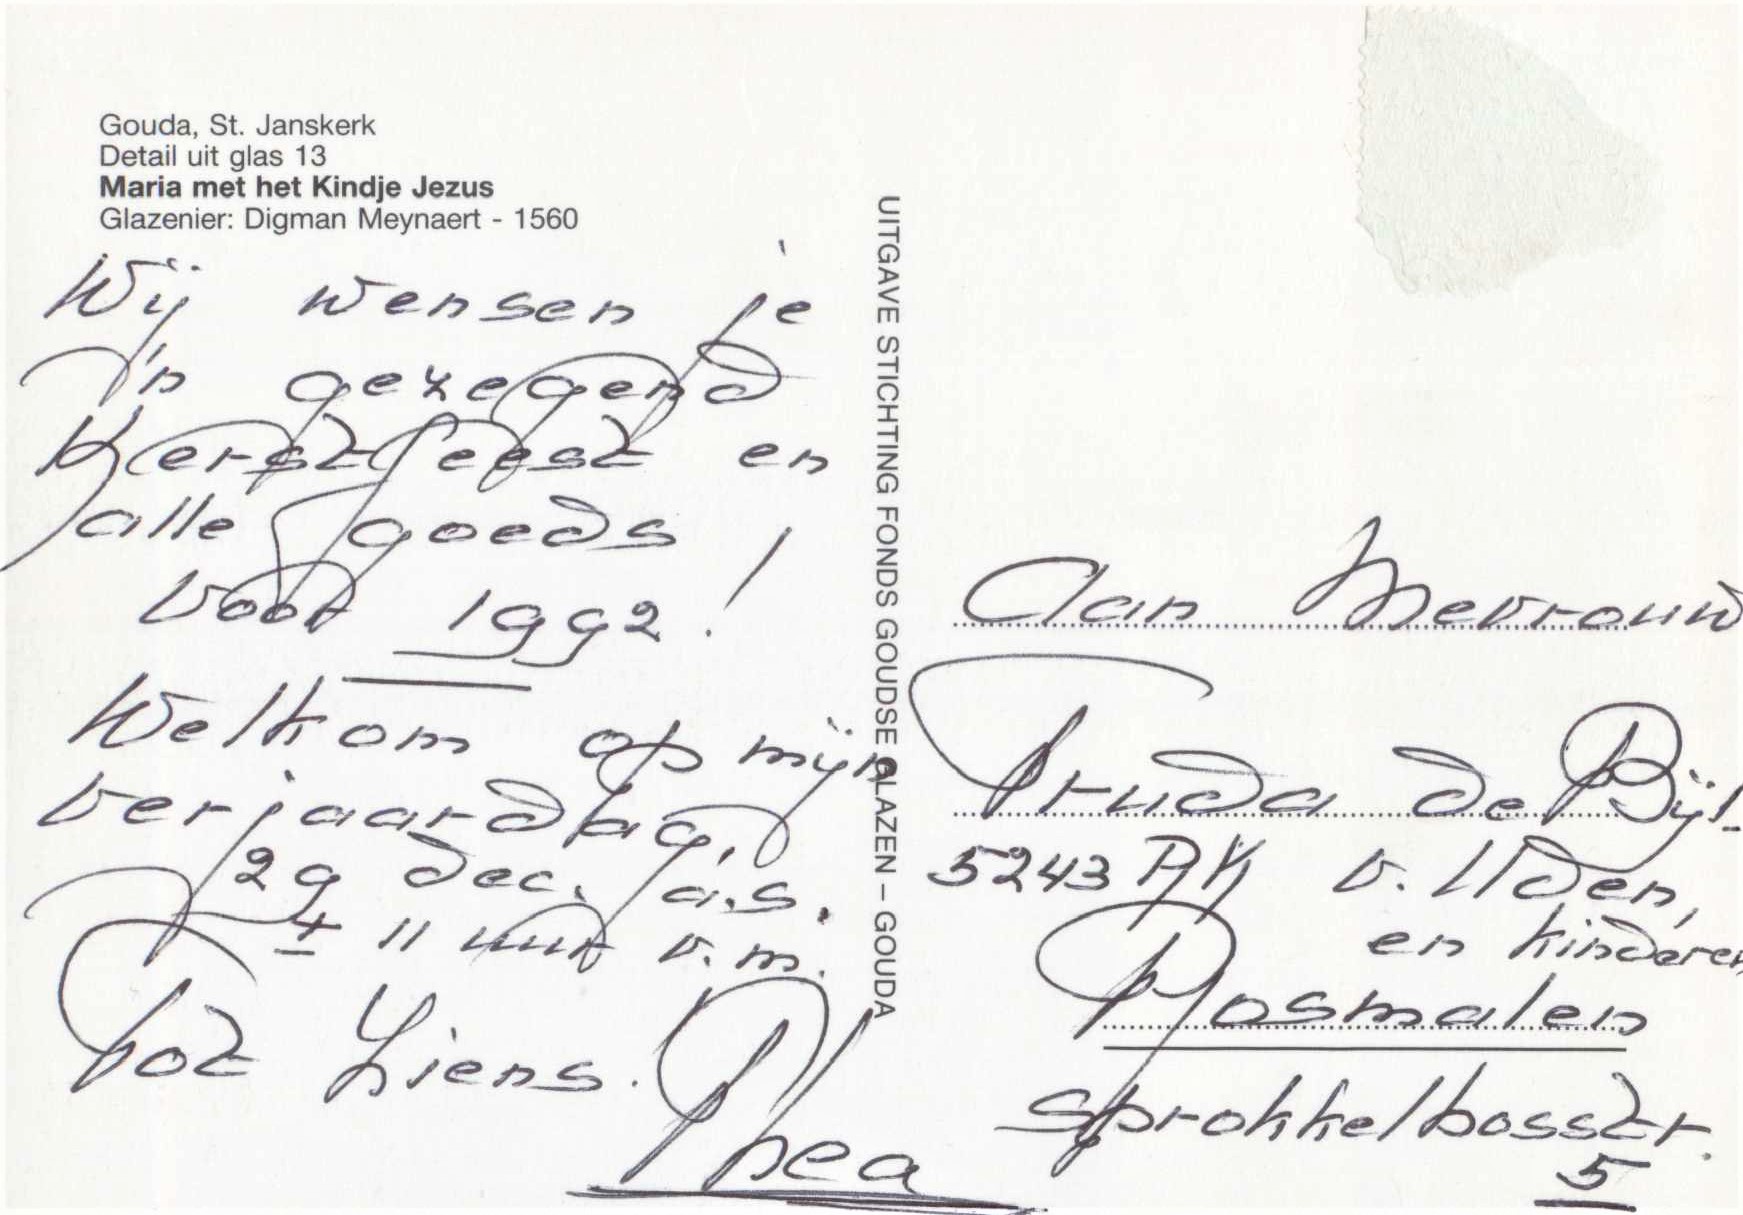 Gouda, St. Janskerk
Detail uit glas 13
Maria met het Kindje Jezus
Glazenier: Digman Meynaert - 1560
Wij wensen je
'n gezegend
Kerstfeest en
alle goeds
voor 1992!
Welkom op mijn
verjaardag,
29 dec. a.s.
± 11 uur v.m.
Tot Ziens.
Thea
UITGAVE STICHTING FONDS GOUDSE GLAZEN – GOUDA
Aan Mevrouw
Truda de Bijl-
5243 RK v. Uden,
en kinderen
Rosmalen
Sprokkelbosstr.
5